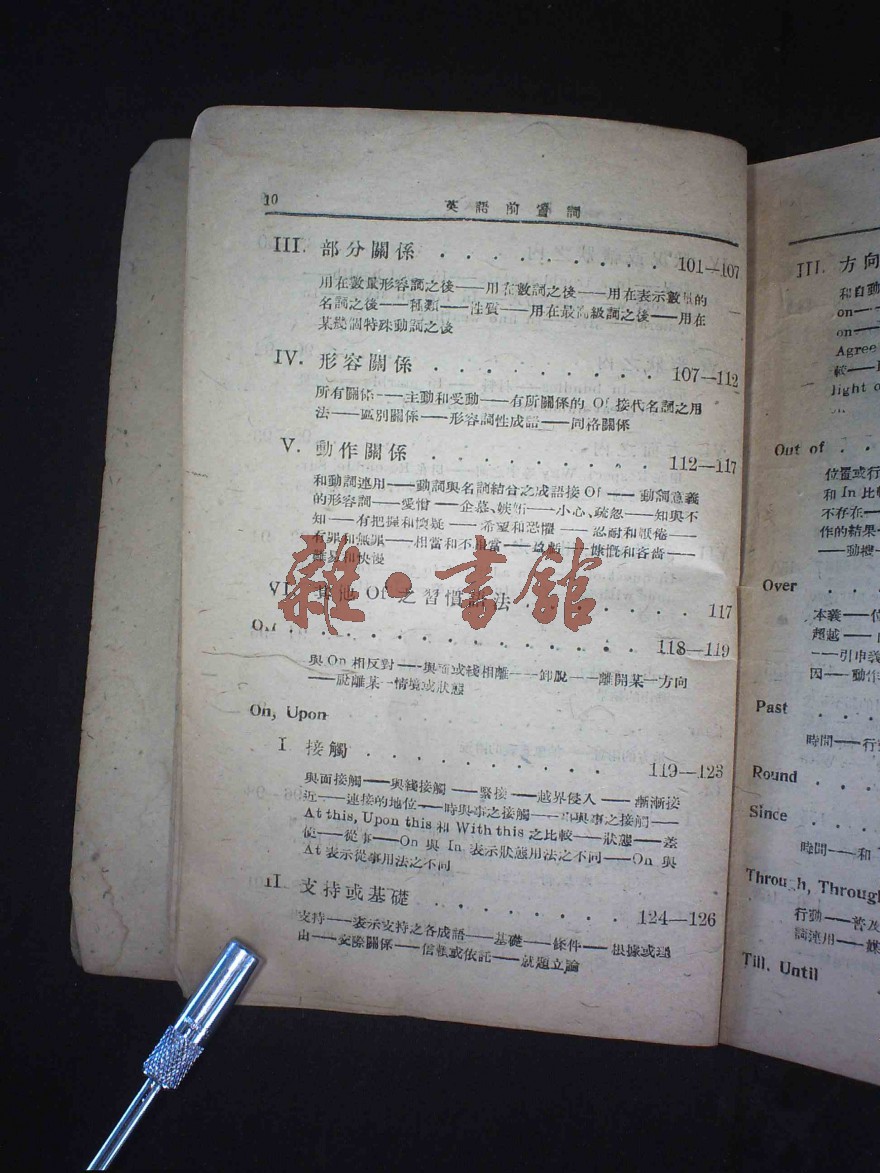 10 英語前置詞
III. 部分關係 . . . . . . . . . . 101—107
用在數量形容詞之後——用在數詞之後——用在表示數量的
名詞之後——種類——性質——用在最高級詞之後——用在
某幾個特殊動詞之後
IV. 形容關係 . . . . . . . . . 107—112
所有關係——主動和受動——有所關係的 Of 接代名詞之用
法——區別關係——形容詞性成語——同格關係
V. 動作關係 . . . . . . . . . 112—117
和動詞連用——動詞與名詞結合之成語接 Of——動詞意義
的形容詞——愛惜——企慕、嫉妬——小心、疏忽——知與不
知——有把握和懷疑——希望和恐懼——忍耐和厭倦——
有罪和無罪——相當和不相當——慷慨和吝嗇——
難易和快慢
VI. 其他 Of 之習慣語法 . . . . . . . 117
雜·書館
Off . . . . . . . . . . . . 118—119
與 On 相反對——與面或綫相離——卸脫——離開某一方向
——脫離某一情境或狀態
On, Upon
I 接觸 . . . . . . . . . . 119—123
與面接觸——與綫接觸——緊接——越界侵入——漸漸接
近——連接的地位——時與事之接觸——事與事之接觸——
At this, Upon this 和 With this 之比較——狀態——差
使——從事——On 與 In 表示狀態用法之不同——On 與
At 表示從事用法之不同
II. 支持或基礎 . . . . . . . . . 124—126
支持——表示支持之各成語——基礎——條件——根據或理
由——交際關係——信賴或依託——就題立論
III. 方向
和自動
on——
on——
Agree
較——
light o
Out of . .
位置或行
和 In 比較
不存在——
作的結果
——動機
Over . .
本義——位
超越——
——引申義
因——動作
Past . .
時間——行
Round .
Since . .
時間——和
Through, Throug
行動——普及
詞連用——
Till, Until